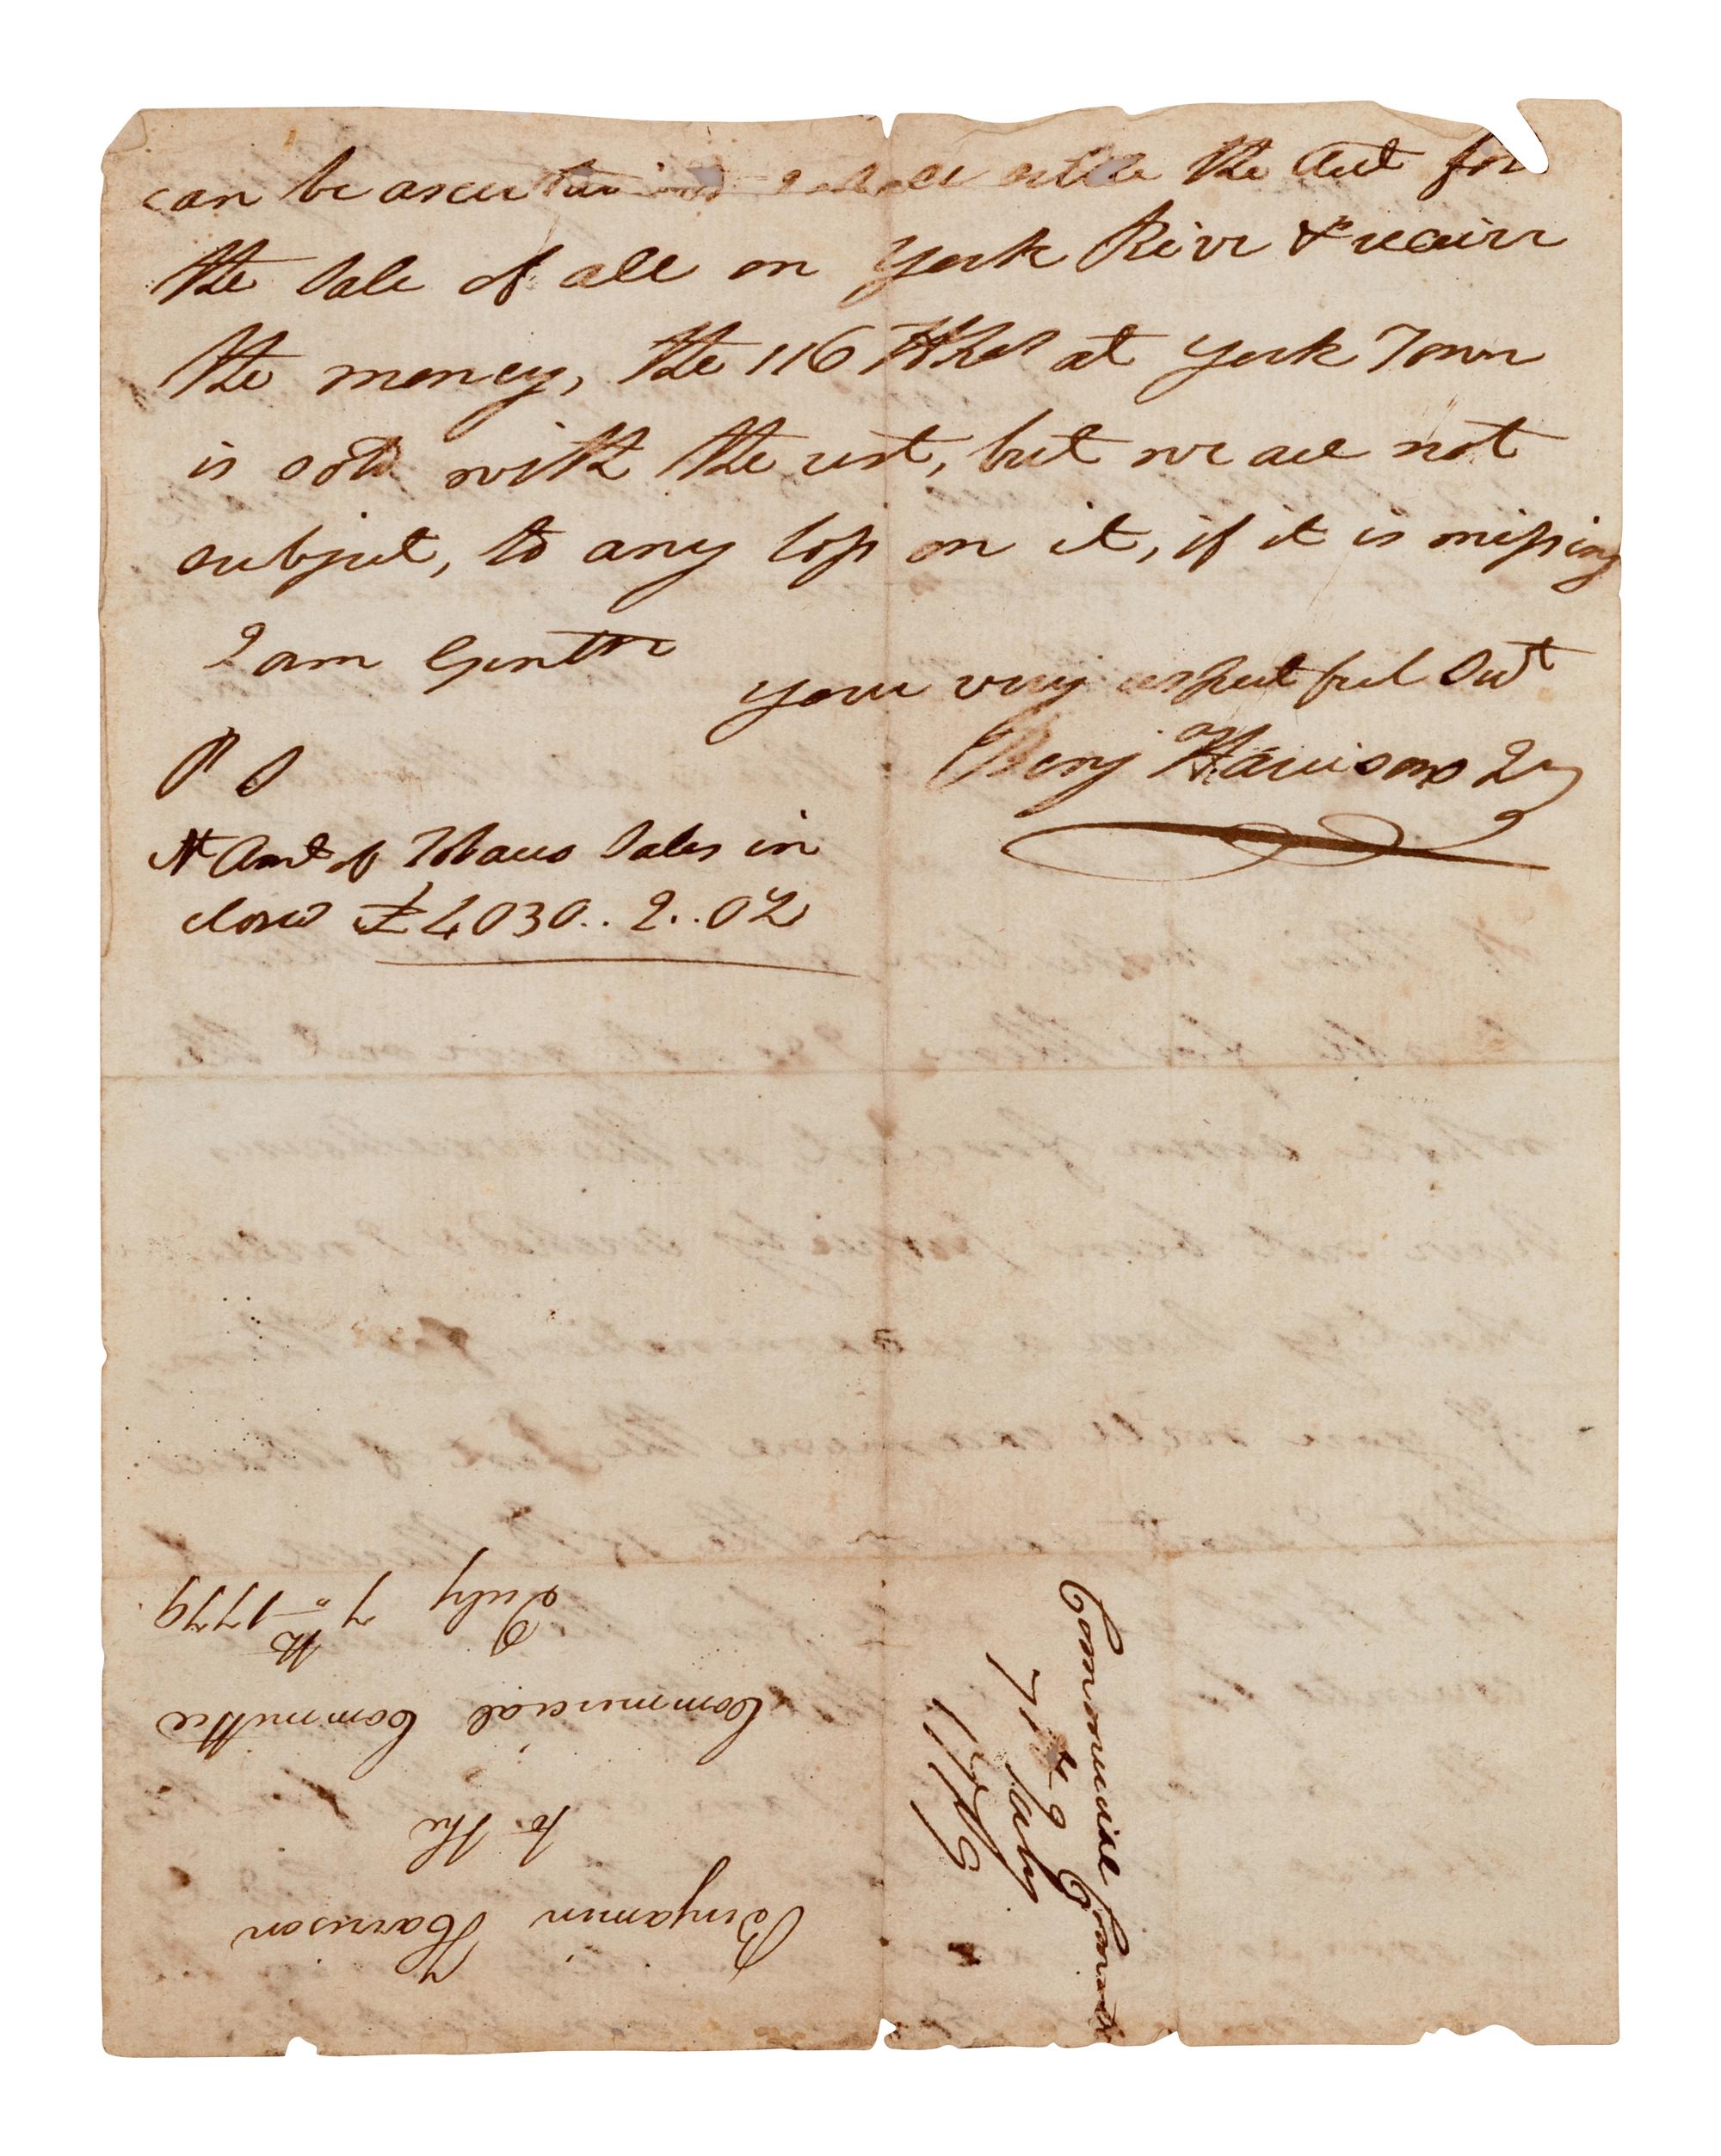 can be ascertained I shall settle the Acct for
the Sale of all on York River & receive
the money, the 116 Hhds at York Town
is sold with the rest, but we are not
subject, to any loss on it, if it is missing
I am Gentn
your very respectful Servt
Benj Harrison Jr
P S
Nt Amt of Tobacco Sales in
closed £4030..2..02
Commercial Comte
7th July
1779
Benjamin Harrison
to the
Commercial Committee
July 7th 1779